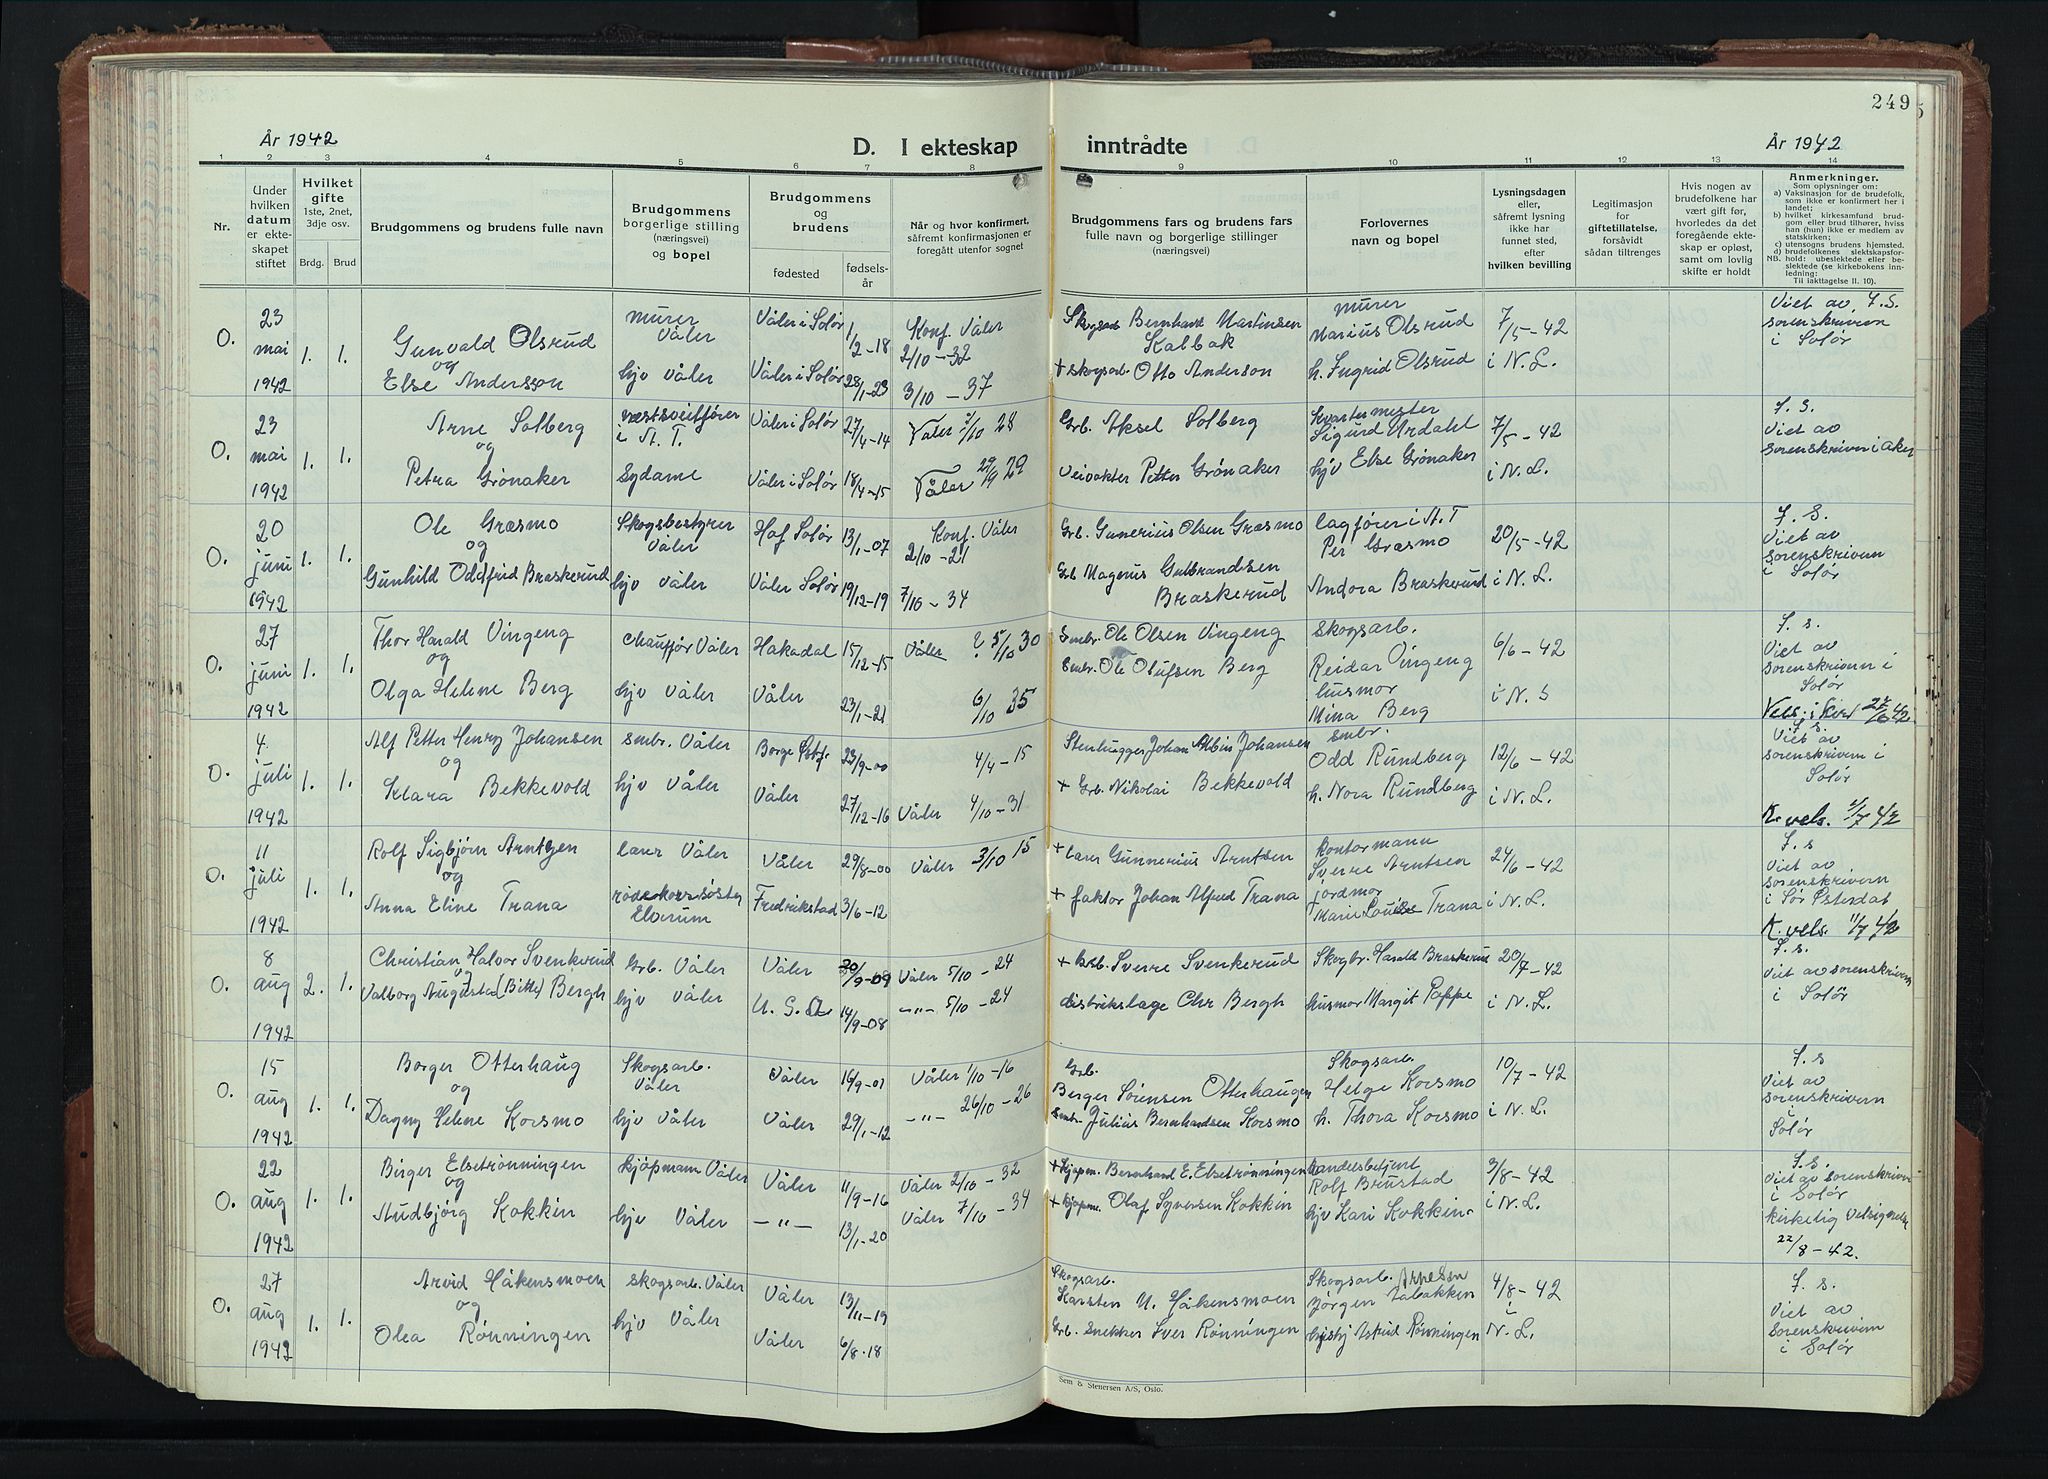 249
År 1942
D. I ekteskap inntrådte
År 1942
1 2 3 4 5 6 7 8 9 10 11 12 13 14
Nr.
Under hvilken datum er ekteskapet stiftet
Hvilket gifte
1ste, 2net, 3dje osv.
Brdg. Brud
Brudgommens og brudens fulle navn
Brudgommens borgerlige stilling (næringsvei) og bopel
Brudgommens og brudens
fødested
fødselsår
Når og hvor konfirmert, såfremt konfirmasjonen er foregått utenfor sognet
Brudgommens fars og brudens fars fulle navn og borgerlige stillinger (næringsvei)
Forlovernes navn og bopel
Lysningsdagen eller, såfremt lysning ikke har funnet sted, efter hvilken bevilling
Legitimasjon for giftetillatelse, forsåvidt sådan tiltrenges
Hvis nogen av brudefolkene har vært gift før, hvorledes da det foregående ekteskap er opløst, samt om lovlig skifte er holdt
Anmerkninger.
Som oplysninger om:
a) Vaksinasjon for de brudefolk, som ikke er konfirmert her i landet;
b) hvilket kirkesamfund brudgom eller brud tilhører, hviss han (hun) ikke er medlem av statskirken;
c) utensogns brudens hjemsted.
d) brudefolkenes slektskapsforhold: ubeslektede eller beslektede (se kirkebokens innledning:
NB. Til iakttagelse II. 10).
0. 23 mai 1942 1. 1.
Gunvald Olsrud murer Våler Våler i Solør 1/2-18 Konf. Våler 2/10-32
og
Else Andersson hjv Våler Våler i Solør 28/1-23 3/10-37
Skogsarb Bernhard Martinsen Kalbak murer Marius Olsrud 7/5-42
+ skogsarb. Otto Anderson h. Ingrid Olsrud i N. L.
Viet av. F. S. sorenskrivern i Solør
0. 23 mai 1942 1. 1.
Arne Solberg i A. T. Våler i Solør 27/4-14 Våler 28
og
Petra Grønaker Sydame Våler i Solør 18/4-15 Våler 29/9 29
Grb. Aksel Solberg Kvartermester Sigurd Årdahl 7/5-42
Veivakter Petter Grønaker hjv Else Grønaker i N. L.
F. S. Viet av Sorenskriveren i Aker
0. 20 juni 1942 1. 1.
Ole Græsmo Skogsbestyrer Våler Hof Solør 13/1-07 Konf. Våler 2/10-21
og
Gunhild Oddfrid Braskerud hjv Våler Våler Solør 19/12-19 7/10-34
Grb. Gunerius Olsen Græsmo lagfører i A. T Per Græsmo 20/5-42
Grb Magnus Gulbrandsen Braskerud Andora Braskerud i N. L.
F. S. Viet av sorenskrivern i Solør
0. 27 juni 1942 1. 1.
Thor Harald Vingeng chauffør Våler Hakadal 15/12-15 Våler ? 5/10 30
og
Olga Helene Berg hjv Våler Våler 23/1-21 6/10 35
Smbr. Ole Olsen Vingeng Skogsarb. Reidar Vingeng 6/6-42
Smbr. Ole Olufsen Berg husmor Mina Berg i N. S
F. s. Viet av sorenskrivern i Solør
0. 4. juli 1942 1. 1.
Alf Petter Henry Johansen smbr. Våler Borge 23/9-00 4/4-15
og
Klara Bekkevold hjv Våler Våler 27/12-16 Våler 4/10-31
Stenhugger Johan Albin Johansen smbr. Odd Rundberg 12/6-42
+ Grb. Nikolai Bekkevold h. Nora Rundberg i N. L.
Viet av sorenskrivern i Solør
K. vels. 4/7 42
0. 11 juli 1942 1. 1.
Rolf Sigbjørn Arntzen lærer Våler Våler 29/8-00 Våler 3/10 15
og
Anna Eline Trana rødekorssøster Elverum Fredrikstad 3/6-12
+ Lærer Gunnerius Arntsen kontormann Sverre Arntsen 24/6-42
+ faktor Johan Alfred Trana jordmor Marie Louise Trana i N. L.
F. s Viet av sorenskrivern i Sør Østerdal
K. vels. 11/7 42
0. 8 aug 1942 2. 1.
Christian Halvor Svenkerud Grb. Våler Våler 30/9-09 Våler 5/10-24
og
Valborg Augusta (Bitte) Bergh hjv Våler U. S. A. 14/9-08 -"- 5/10-24
+ Grb. Sverre Svenkerud Skogbr. Harald Braskerud 20/7-42
distriktslæge Chr Bergh husmor Margit Pappe i N. L.
F. s. viet av sorenskrivern i Solør
0. 15 aug 1942 1. 1.
Borger Otterhaug Skogsarb. Våler Våler 16/9-01 Våler 1/10-16
og
Dagny Helene Korsmo hjv Våler Våler 29/1-12 -"- 26/10-26
Grb. Berger Sørensen Otterhaugen Skogsarb. Helge Korsmo 10/7-42
Smbr. Julius Bernhardsen Korsmo h. Thora Korsmo i N. L.
F. s Viet av sorenskrivern i Solør
0. 22 aug 1942 1. 1.
Birger Elsetrønningen kjøpmann Våler Våler 11/9-16 Våler 2/10-32
og
Audbjørg Kokkin hjv Våler -"- 13/1-20 Våler 7/10-34
+ kjøpm. Bernhard E. Elsetrønningen Handelsbetjent Rolf Brustad 3/8-42
+ kjøpm. Olaf Syversen Kokkin hjv Kari Kokkin i N. L.
F. s. Viet av sorenskrivern i Solør kirkelig velsignelse 22/8-42.
0. 27 aug 1942 1. 1.
Arvid Håkensmoen skogsarb. Våler Våler 13/11-19
og
Olea Rønningen hjv Våler Våler 6/8-18
Skogsarb. Karsten U. Håkensmoen Skogsarb. Arnesen Jørgen Labakken 4/8-42
Grb. Snekker Iver Rønningen Astrid Rønningen i N. L.
F. s. Viet av sorenskrivern i Solør
Sem & Stenersen A/S, Oslo.